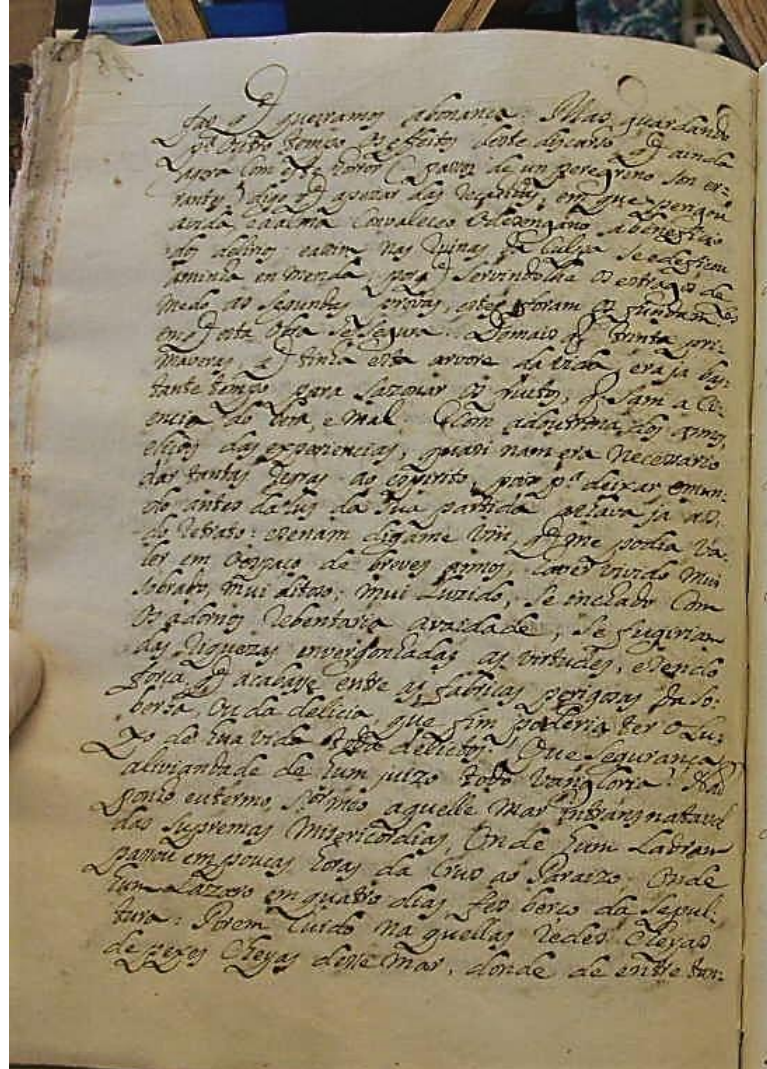 faz o q̃ queiramos abonança: Mas guardando
pª outro tempo os effeitos deste discurso, q̃ ainda
agora com este horror ( passos de un peregrino son er-
rantes ) digo q̃ apezar das, em que perigou
avida, eaalma Convaleceo Odezengano abeneficio
dos delirios, eassim nas Ruinas da Culpa Seedeficou
aminha enmenda, porq̃ Servindolhe os estragos de
medo as Segundas provas, estes foram os fundamtos.
enq̃ esta Obra SeSegura. Domais q̃ trinta pri-
maveras q̃ tinha esta arvore da vida, era ja bas-
tante tempo para Sazonar os fructos, q̃ Sam a Ci-
encia do bem, e mal. Com adoutrina dos annos,
das experiencias, quasi nam era Necessario
dar tantas Regras ao espirito, pois pª deixar omun-
do antes daLus da Sua partida
de Retrato: esenam digame Vm, q̃ me podia Va-
ler em Oespaço de breves annos, haver vivido mui
Sobrado, mui ditoso, mui Luzido, Se inchado Com
Os adornos Rebentaria avaidade, Se fugiriam
das Riquezas envergonhadas as virtudes, esendo
força, q̃ acabase entre as fabricas perigozas daSo-
berba, Ou da delicia, que fim poderia ter oLu-
zo de hua vida toda delictos! Que Segurança
aliviandade de hum juizo todo Vangloria! Nao
ponho eutermo, aquelle Mar
das Supremas Misericordias, Onde hum Ladram
passou em poucas horas da Crus ao Paraizo, Onde
hum Lazaro em quatro dias fes berço da Sepul-
tura: Porem Cuido na quellas Redes Cheyas
de pexes Cheyas desse Mar, donde de entre tan-